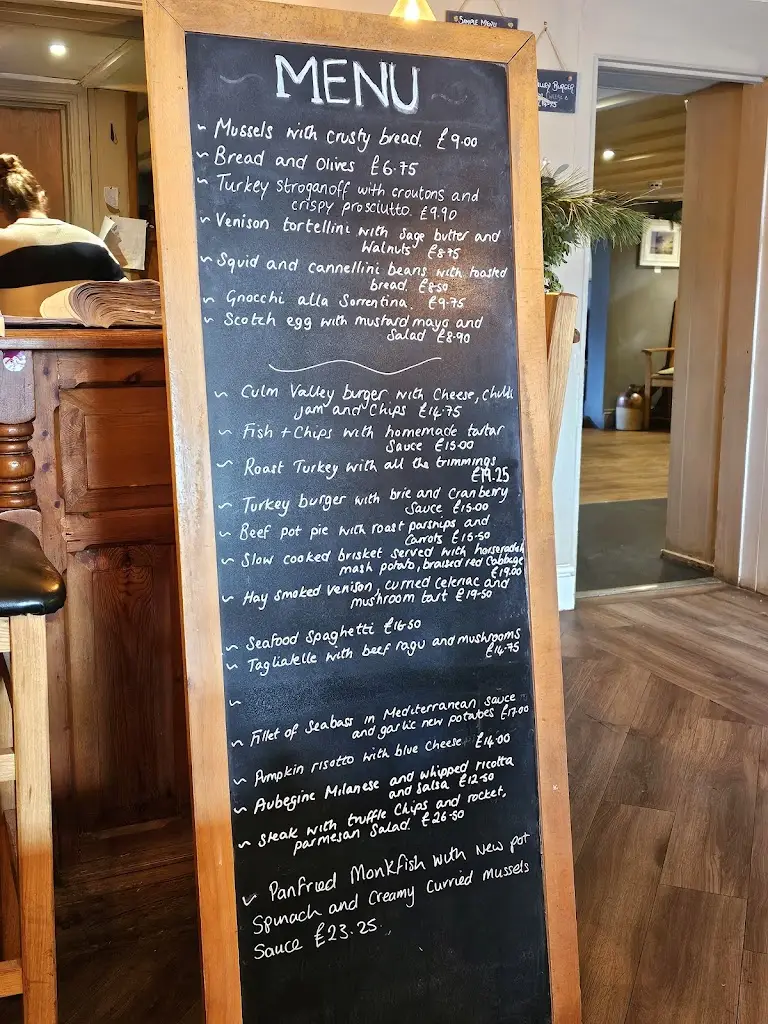 SAMPLE MENU
BURGER
MENU
~ Mussels with crusty bread. £9.00
~ Bread and Olives £6.75
~ Turkey stroganoff with croutons and
crispy prosciutto. £9.90
~ Venison tortellini with Sage butter and
Walnuts £8.75
~ Squid and cannellini beans with toasted
bread. £8.50
~ Gnocchi alla Sorrentina. £9.75
~ Scotch egg with mustard mayo and
Salad £8.90
~ Culm Valley burger with Cheese, Chilli
jam and Chips £14.75
~ Fish + Chips with homemade tartar
Sauce £15.00
~ Roast Turkey with all the trimmings
£19.25
~ Turkey burger with brie and Cranberry
Sauce £15.00
~ Beef pot pie with roast parsnips and
Carrots £16.50
~ Slow cooked brisket served with horseradish
mash potato, braised red Cabbage
£19.00
~ Hay smoked venison, curried celeriac and
mushroom tart £19.50
~ Seafood Spaghetti £16.50
~ Tagliatelle with beef ragu and mushrooms
£14.75
~
~ Fillet of Seabass in Mediterranean Sauce
and garlic new potatoes £17.00
~ Pumpkin risotto with blue Cheese £14.00
~ Aubegine Milanese and whipped ricotta
and salsa £12.50
~ Steak with truffle Chips and rocket,
parmesan Salad. £26.50
~ Panfried Monkfish with New pot
Spinach and Creamy Curried mussels
Sauce £23.25.